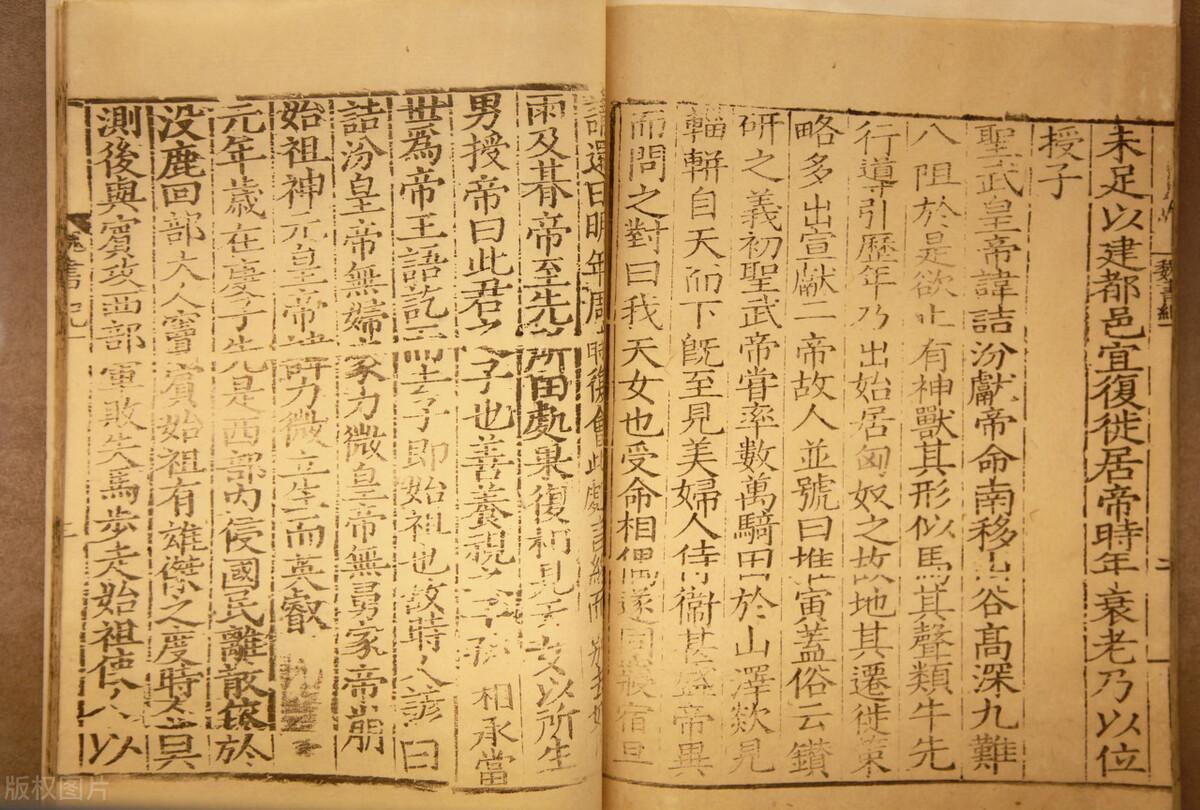 魏書紀一
二
未足以建都邑宜復徙居帝時年衰老乃以位
授子
聖武皇帝諱詰汾獻帝命南移山谷高深九難
八阻於是欲止有神獸其形似馬其聲類牛先
行導引歷年乃出始居匈奴之故地其遷徙策
略多出宣獻二帝故人並號曰推寅蓋俗云鑽
研之義初聖武帝甞率數萬騎田於山澤欻見
輜軿自天而下旣至見美婦人侍衞甚盛帝異
而問之對曰我天女也受命相偶遂同寢宿旦
請還曰明年周時復會此處言終而別去如
雨及朞帝至先所田處果復相見天女以所生
男授帝曰此君之子也善養視之子孫相承當
世爲帝王語訖而去子即始祖也故時人諺曰
詰汾皇帝無婦家力微皇帝無舅家帝崩
始祖神元皇帝諱力微立生而英叡
元年歲在庚子先是西部內侵國民離散依於
没鹿回部大人竇賓始祖有雄傑之度時人莫
測後與賓攻西部軍敗失馬步走始祖使人以
魏書紀一
版权图片